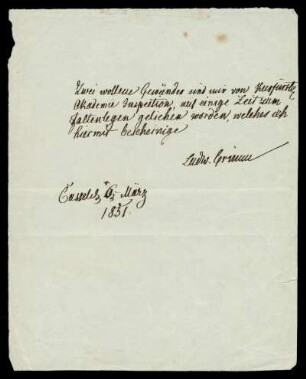 Zwei wollene Gewänder sind mir von Kurfürstl.
Akademie Inspection, auf einige Zeit zum
Faltenlegen geliehen worden, welches ich
hiermit bescheinige
Ludw. Grimm
Cassel d. 6. März
1851.